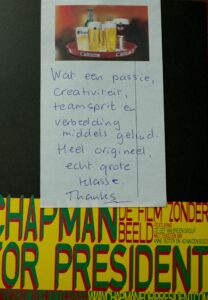 Wat een passie,
creativiteit,
teamsprit en
verbeelding
middels geluid.
Heel origineel,
echt grote
klasse.
Thanks
CHAPMAN
DE FILM ZONDER
BEELD
FOR PRESIDENT